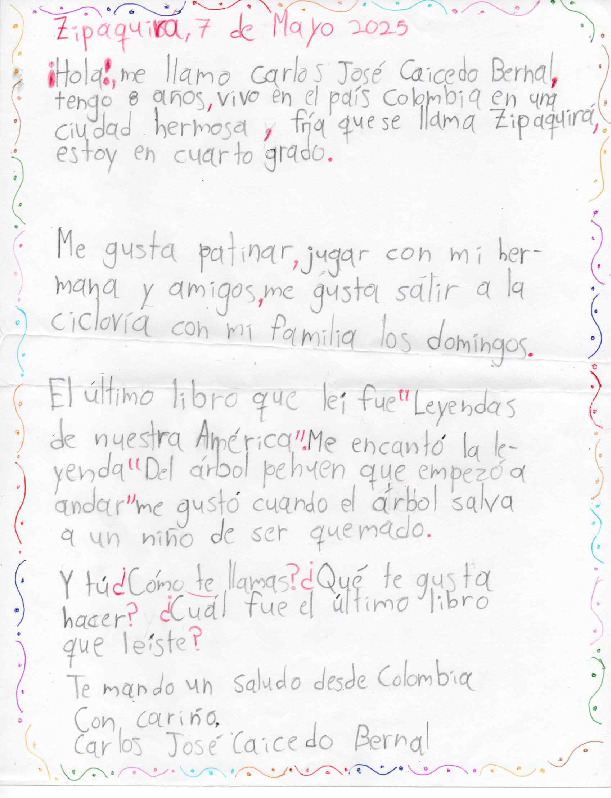 Zipaquira, 7 de Mayo 2025
¡Hola!, me llamo Carlos José Caicedo Bernal,
tengo 8 años, vivo en el país Colombia en una
ciudad hermosa, fría que se llama Zipaquirá,
estoy en cuarto grado.
Me gusta patinar, jugar con mi her-
mana y amigos, me gusta salir a la
ciclovía con mi familia los domingos.
El último libro que leí fue "Leyendas
de nuestra América". Me encantó la le-
yenda "Del árbol pehuen que empezó a
andar" me gustó cuando el árbol salva
a un niño de ser quemado.
Y tú ¿Cómo te llamas? ¿Qué te gusta
hacer? ¿Cuál fue el último libro
que leíste?
Te mando un saludo desde Colombia
Con cariño.
Carlos José Caicedo Bernal